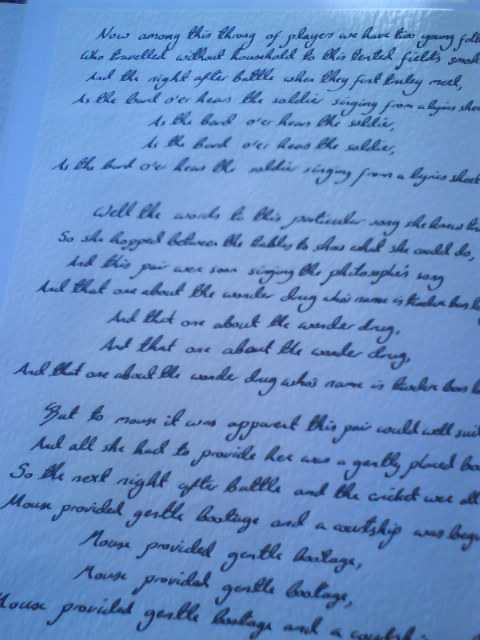 Now among this throng of players we have two young
Who travelled without household to this tented fields
And the night after battle when they first truley meet,
As the bard o'er hears the soldier singing from a lyrics
As the bard o'er hears the soldier,
As the bard o'er hears the soldier,
As the bard o'er hears the soldier singing from a lyrics sheet
Well the words to this particular song she knew
So she hopped between the tables to show what she could do,
And this pair wer soon singing the philosophe's song
And that one about the wonder drug who's name is
And that one about the wonder drug,
And that one about the wonder drug,
And that one about the wonder drug who's name is
But to mouse it was apparent this pair would well
And all she had to provide her was a gently placed
So the next night after battle and the cricket wer all
Mouse provided gentle bootage and a courtship was
Mouse provided gentle bootage,
Mouse provided gentle bootage,
Mouse provided gentle bootage and a